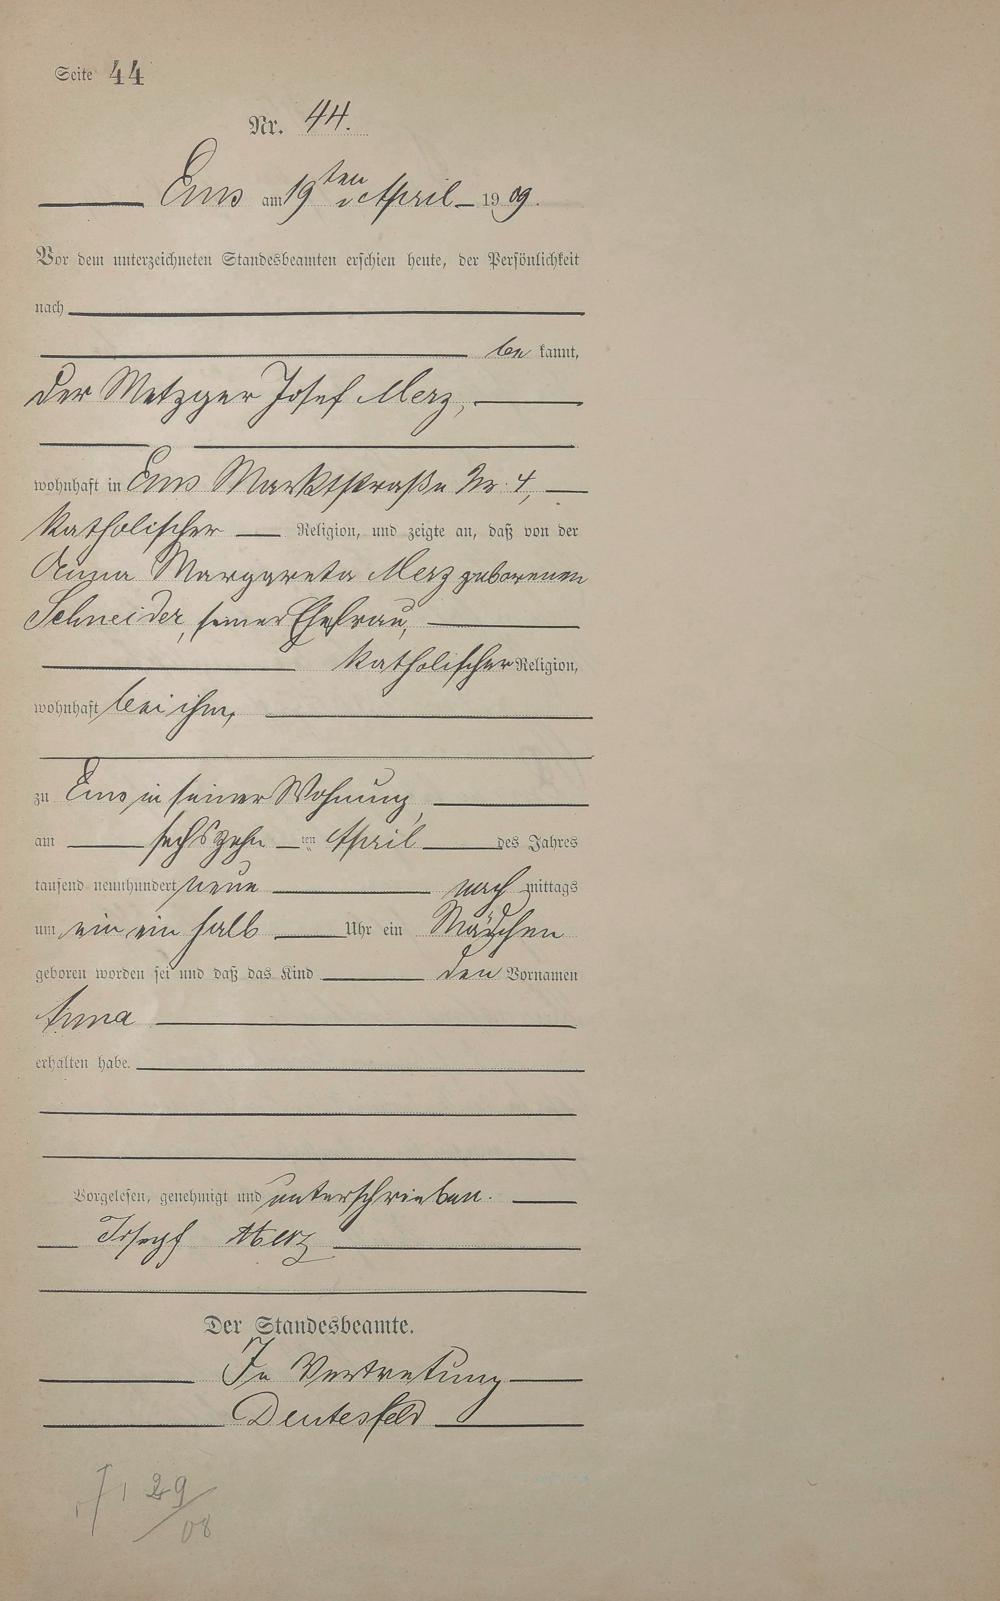 Seite 44
Nr. 44.
Ems am 19ten April 1909.
Vor dem unterzeichneten Standesbeamten erschien heute, der Persönlichkeit
nach
be kannt,
der Metzger Josef Merz,
wohnhaft in Ems Marktstraße Nr. 4,
katholischer Religion, und zeigte an, daß von der
Anna Margareta Merz geborenen
Schneider, seiner Ehefrau,
katholischer Religion,
wohnhaft bei ihm,
zu Ems, in seiner Wohnung,
am sechszehn ten April des Jahres
tausend neunhundert neun nach mittags
um ein ein halb Uhr ein Mädchen
geboren worden sei und daß das Kind den Vornamen
Anna
erhalten habe.
Vorgelesen, genehmigt und unterschrieben.
Josef Merz
Der Standesbeamte.
In Vertretung
29
08